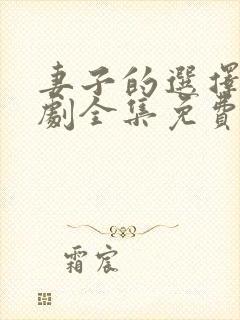 妻子的選擇
劇全集免費
霜宸